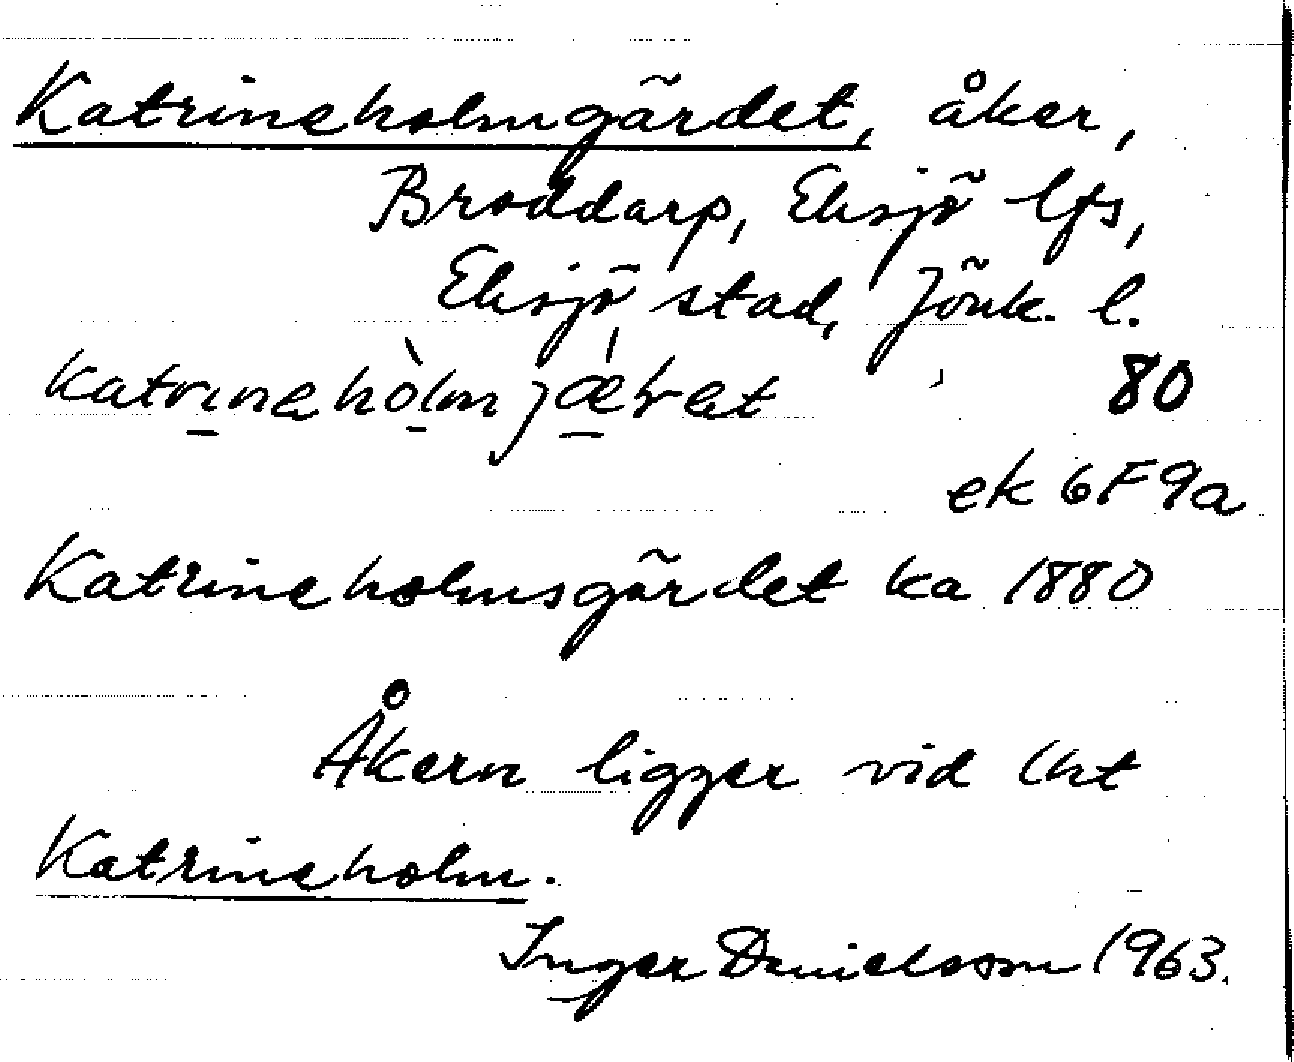 Katrineholmgärdet, åker,
Broddarp, Eksjö lfs,
Eksjö stad, Jönk. l.
katrinehòlmjǽɽet 80
ek 6F9a
Katrineholmsgärdet ka 1880
Åkern ligger vid lht
Katrineholm.
Inger Danielsson 1963.